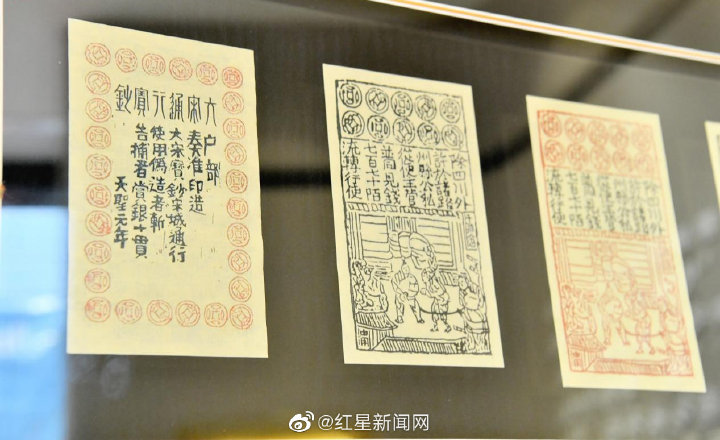 大宋通行寶鈔
户部
奏准印造
大宋寳鈔宋城通行
使用偽造者斬
告捕者賞銀十貫
天聖元年
除四川外
許於諸路
州縣公私
從便主管
並同見錢
七百七十陌
流轉行使
除四川外
許於諸路
州縣公私
流轉行使
@红星新闻网